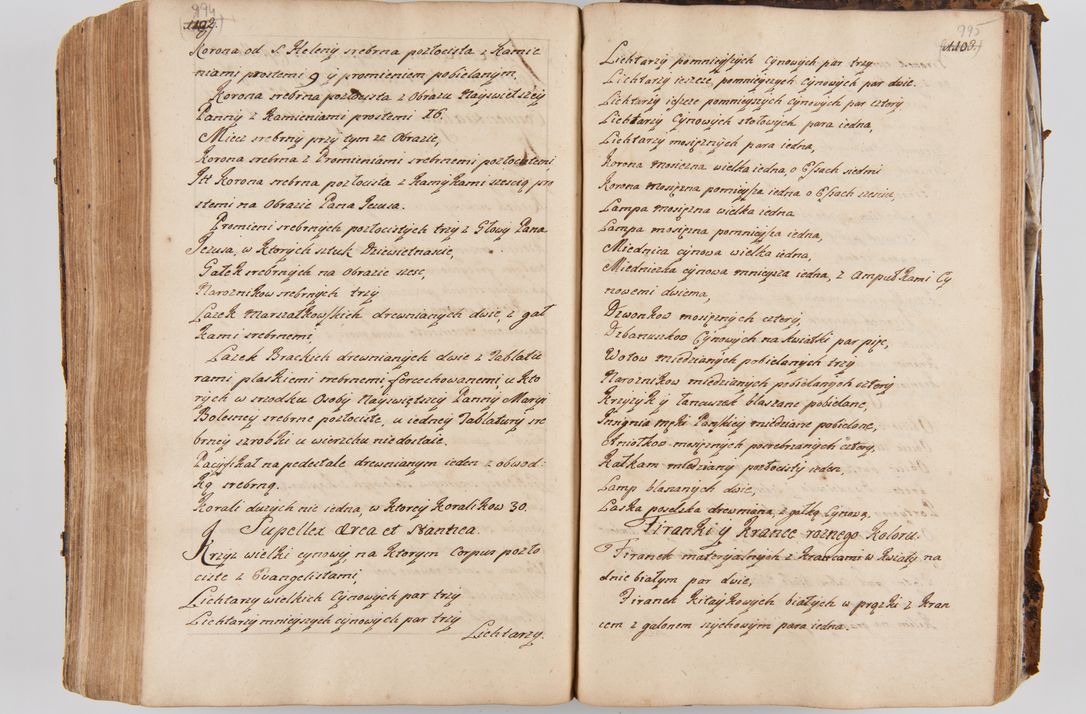 994
1102.
Korona od S. Heleny srebrna pozłocista z Kamie
niami prostemi 9 y promieniem pobielanym,
Korona srebrna pozłocista z Obrazu Nayswietszey
Panny z Kamieniami prostemi 26.
Miecz srebrny przy tymze Obrazie,
Korona srebrna z Promieniami srebrnemi pozłocatemi
Itt Korona srebrna pozłocista z Kamykami szescią pro
stemi na Obrazie Pana Jezusa.
Promieni srebrnych pozłocistych trzy z Głowy Pana
Jezusa, w Ktorych sztuk Dziewietnascie,
Gałek srebrnych na obrazie szesc,
Naroznikow srebrnych trzy
Lasek Marszałkowskich drewnianych dwie, z gał
kami srebrnemi,
Lasek Brackich drewnianych dwie z Tablatu
rami płaskiemi srebrnemi sforcechowanemi, w Kto
rych w srzodku Osoby Nayswiętszey Panny Maryi
Bolesney srebrne pozłociste, u iedney Tablatury sre
brney szrobki u wierzchu niedostaie.
Pacyfikał na pedestale drewnianym ieden z obwod-
ką srebrną.
Korali duzych nic iedna, w Ktorey Koralikow 30.
Supellex Ærea et Stannea.
Krzyz wielki cynowy na Ktorym Corpus pozło
ciste z Ewangelistami,
Lichtarzy wielkich Cynowych par trzy
Lichtarzy mnieyszych cynowych par trzy
Lichtarzy.
995
1103.
Lichtarzy pomnieyszych Cynowych par trzy
Lichtarzy ieszcze pomnieyszych Cynowych par dwie.
Lichtarzy ieszcze pomnieyszych cynowych par cztery
Lichtarzy Cynowych stołowych para iedna,
Lichtarzy mosięznych para iedna,
Korona Mosiezna wielka iedna, o Cyfsach siedmi
Korona Mosiężna pomnieysza iedna o Cyfsach szesciu,
Lampa Mosięzna wielka iedna
Lampa mosięzna pomnieysza iedna,
Miednica cynowa wielka iedna,
Miedniczka cynowa mnieysza iedna, z Ampułkami Cy
nowemi dwiema,
Dzwonkow mosięznych cztery,
Dzbanuszkow Cynowych na kwiatki par pięc,
Wotow miedzianych pobielanych trzy
Naroznikow miedzianych pobielanych cztery
Krzyzyk y łancuszek blaszane pobielane,
Insignia męki Pańskiey miedziane pobielane,
Aniołkow mosięznych posrebrzanych cztery,
Kałkan miedziany pozłocisty ieden,
Lamp blaszanych dwie,
Laska poselska drewniana, z gałką Cynową,
Firanki y Krance roznego Koloru.
Firanek materyalnych z Krancami w Kwiaty na
dnie białym par dwie,
Firanek Kitaykowych białych w prązki z Kran
cem z galonem szychowym para iedna.